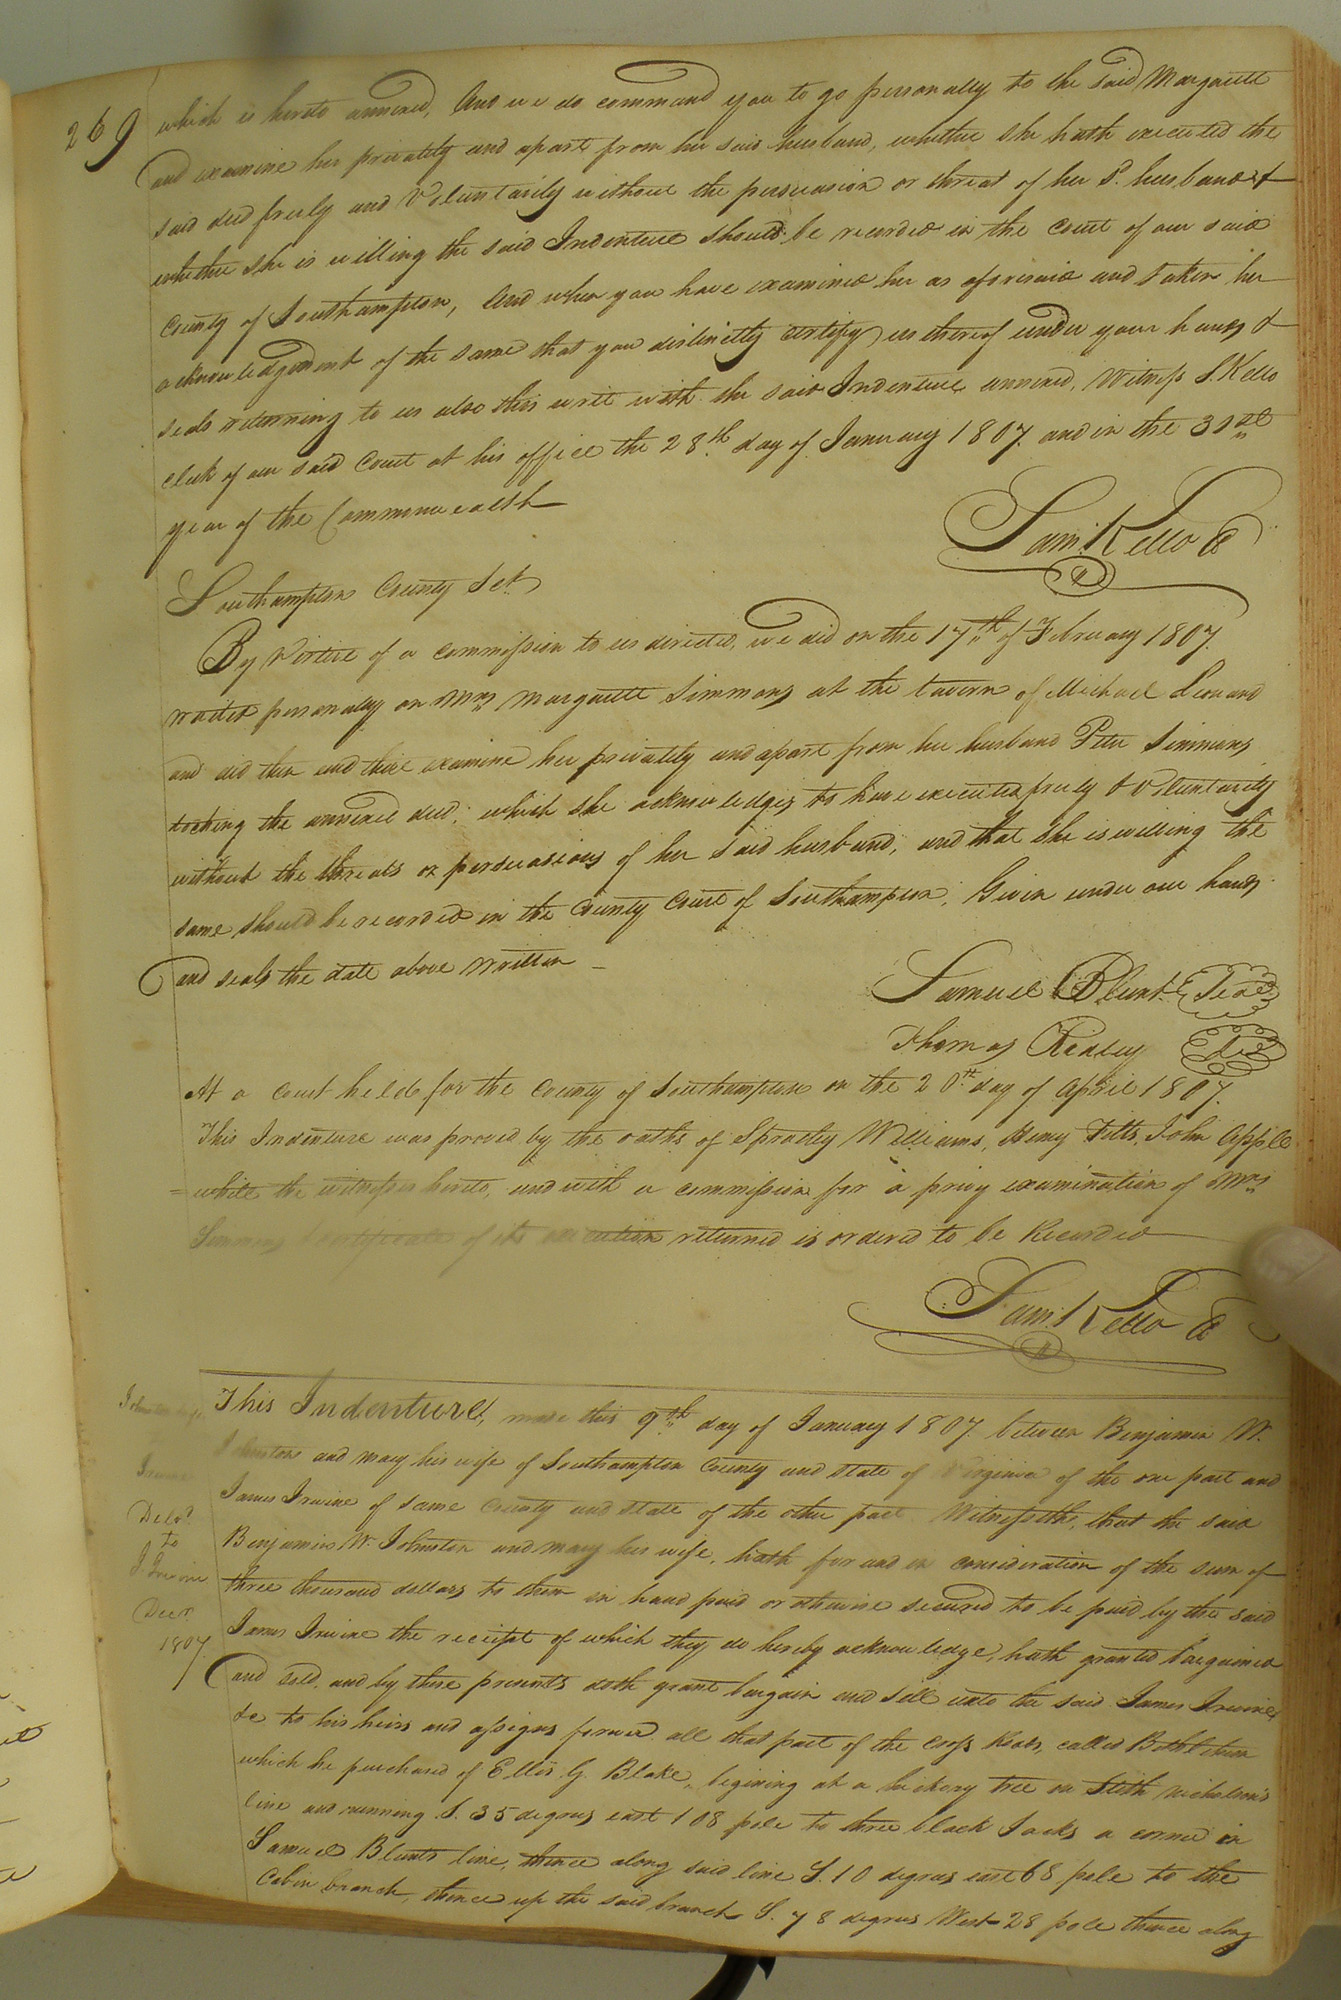 269
which is hereto annexed, And we do command you to go personally to the said Margarett
and examine her privately and apart from her said husband, whether she hath executed the
said deed freely and Voluntarily without the persuasion or threat of her sd. husband &
whether she is willing the said Indenture should be recorded in the court of our said
County of Southampton, And when you have examined her as aforesaid and taken her
acknowledgment of the same that you distinctly certify us thereof under your hands &
seals returning to us also this writ with the said Indenture annexed, Witness S. Kello
clerk of our said Court at his office the 28th day of January 1807. and in the 31st
year of the Commonwealth
Sam. Kello
Southampton County Sct.
By Virtue of a commission to us directed, we did on the 17th of February 1807.
waited personally on Mrs Margarett Simmons at the tavern of Michael Leonard
and did then and there examine her privately and apart from her husband Peter Simmons
tocking the annexed deed; which she acknowledges to have executed freely & voluntarily
without the threats or persuasions of her said husband, and that she is willing the
same should be recorded in the County Court of Southampton. Given under our hands
and seals the date above written
Samuel Blunt Seal
Thomas Ridley Seal
At a court held for the County of Southampton on the 20th day of April 1807.
This Indenture was proved by the oaths of Spratley Williams, Henry Fitts, John Apple
=white the witnesses hereto, and with a commission for a privy examination of Mrs
Simmons & certificate of its execution returned is ordered to be Recorded
Sam. Kello
This Indenture, made this 9th day of January 1807. between Benjamin W.
Johnston and mary his wife of Southampton County and state of Virginia of the one part and
James Irwine of same County and state of the other part Witnesseth, that the said
Benjamin W. Johnston and mary his wife, hath for and in consideration of the sum of
three thousand dollars to them in hand paid or otherwise secured to be paid by the said
James Irwine the receipt of which they do hereby acknowledge, hath granted bargained
and sold, and by these presents doth grant bargain and sell unto the said James Irwine,
&c to his heirs and assigns forever all that part of the Cross Keys, called Bethlehem
which he purchased of Ellis G. Blake, begining at a hickory tree on Stith Nicholson's
line and running S. 35 degrees east 108 pole to three black Jacks a corner in
Samuel Blunts line, thence along said line S. 10 degrees east 68 pole to the
Cabin branch, thence up the said branch S. 78 degrees West 28 pole thence along
Irwine
Deld.
to
J. Irwine
Decr.
1807.